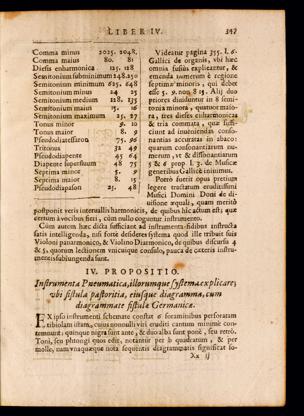 LIBER IV. 347
Comma minus 2025. 2048.
Comma maius 80. 81
Diesis enharmonica 125. 128
Semitonium subminimum 248.250
Semitonium minimum 625. 648
Semitonium minus 24 25
Semitonium medium 128. 135
Semitonium maius 15. 16
Semitonium maximum 25. 27
Tonus minor 9. 10
Tonus maior 8. 9
Pseudodiatessaron 75. 96
Tritonus 32 45
Pseudodiapente 45 64
Diapente superfluum 48 75
Septima minor 5. 9
Septima maior 8. 15
Pseudodiapason 25. 48
Videatur pagina 355. l. 6.
Gallici de organis, vbi hæc
omnia fusius explicantur, &
emenda numerum è regione
septimæ minoris, qui debet
esse 5. 9. non 85. Alij duo
priores diuiduntur in 8 semi-
tonia minora, quatuor maio-
ra, tres dieses enharmonicas
& tria commata, quæ suffi-
ciunt ad inueniendas conso-
nantias accuratas in abaco:
quarum consonantiarum nu-
merum, vt & dissonantiarum
5 & 6 prop. l. 3. de Musicæ
generibus Gallicè inuimus.
Potrò fuerit opus pretium
legere tractatum eruditissimi
Musici Domini Doni de di-
uisione æquali, quam meritò
postponit veris interuallis harmonicis, de quibus hîc actum est; quæ
certum à vocibus fieri, cùm nullo coguntur instrumento.
Cùm autem hæc dicta sufficiant ad instrumenta fidibus instructa
satis intelligenda, nisi fortè desideres systema quod ille tribuit suis
Violoni panarmonico, & Violino Diarmonico, de quibus discursu 4
& 5, quorum lectionem vnicuique consulo, pauca de cæteris instru-
mentis subiungenda sunt.
IV. PROPOSITIO.
Instrumenta Pneumatica, illorumque systema explicare;
vbi fistula pastoritia, eiusque diagramma, cum
diagrammate fistulæ Germanicæ.
EX ipso instrumenti schemate constat 6 foraminibus perforatam
tibiolam istam, cuius nonnulli viri eruditi cantum minimè con-
temnunt: quinque nigra sunt ante, & duo alba sunt ponè, seu retrò.
Toni, seu phtongi quos edit, notantur per ♮ quadratum, & per
♭ molle, nam vnaquæque nota sequentis diagrammatis significat so-
Xx ij